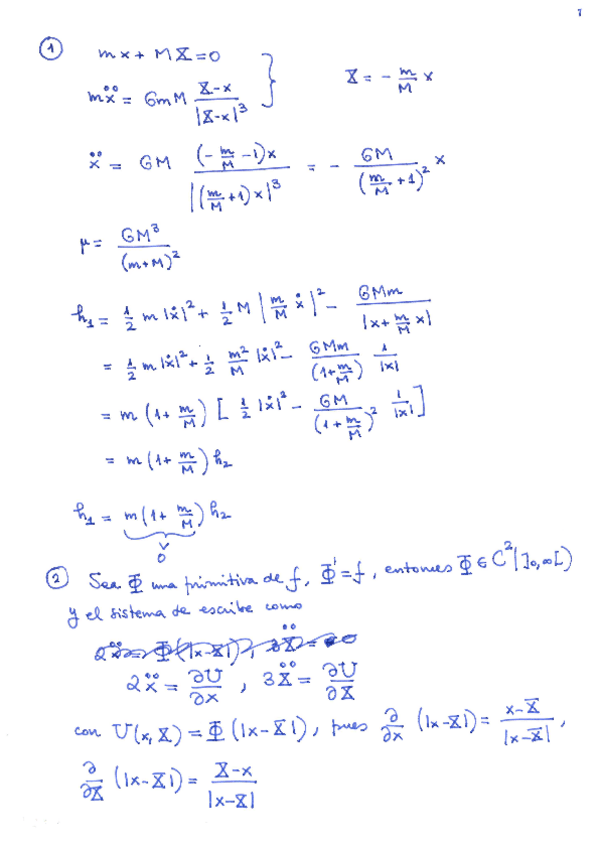 1
① mx + MX = 0
mẍ = GmM (X-x)/|X-x|³ } X = - m/M x
ẍ = GM (-m/M -1)x / |(m/M +1)x|³ = - GM/(m/M +1)² x
μ = GM³/(m+M)²
h₁ = 1/2 m |ẋ|² + 1/2 M |m/M ẋ|² - GMm/|x + m/M x|
= 1/2 m |ẋ|² + 1/2 m²/M |ẋ|² - GMm/(1+m/M) 1/|x|
= m (1+ m/M) [ 1/2 |ẋ|² - GM/(1+ m/M)² 1/|x| ]
= m (1+ m/M) h₂
h₁ = m (1+ m/M) h₂
∨
0
② Sea Φ una primitiva de f, Φ' = f, entonces Φ ∈ C²(]0,∞[)
y el sistema de escribe como
2ẍ = ∂U/∂x , 3Ẍ = ∂U/∂X
con U(x, X) = Φ (|x-X|), pues ∂/∂x (|x-X|) = (x-X)/|x-X| ,
∂/∂X (|x-X|) = (X-x)/|x-X|